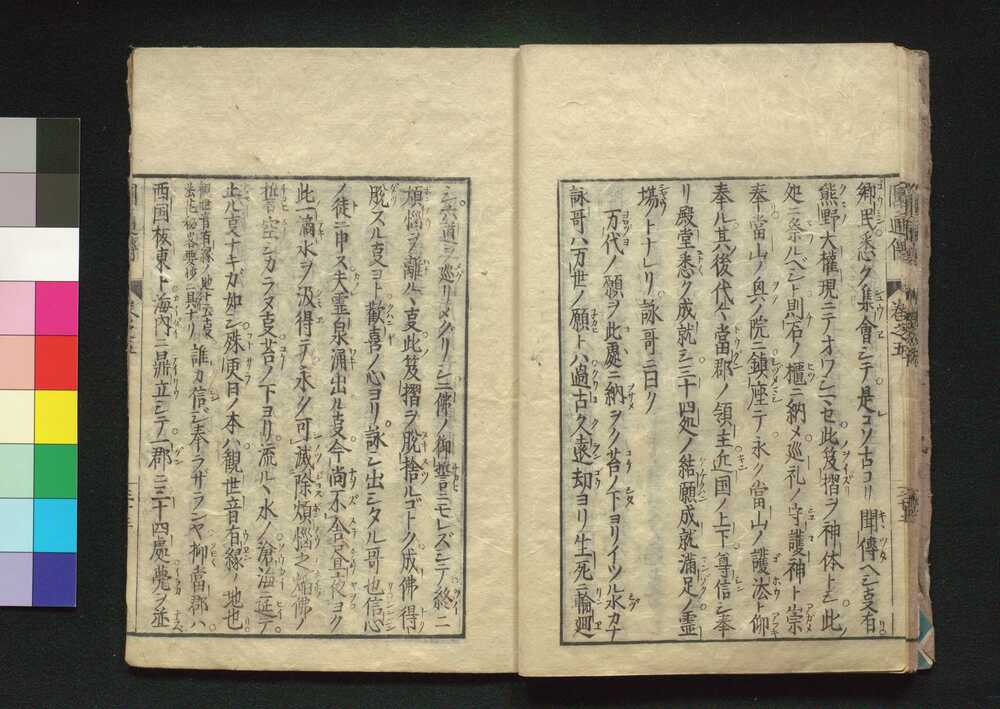 郷民悉ク集會シテ是コソ古コリ聞傳ヘシ㕝有
熊野大權現ニテオワシマセ此笈摺ヲ神体トシ此
処ニ祭ルベシト則石ノ櫃ニ納メ巡礼ノ守護神ト崇
奉當山ノ奥ノ院ニ鎮座テ永ク當山ノ護法ト仰
奉ル其後代々當郡ノ領主近国ノ上下尊信シ奉
リ殿堂悉ク成就シ三十四処ノ結願成就滿足ノ霊
塲ノトナレリ詠哥ニ曰ク
万代ノ願ヲ此處ニ納ヲク苔ノ下ヨリイツル水カナ
詠哥ハ万世ノ願ト八過古久遠却ヨリ生死ニ輪廻
シ六道ヲ巡リメグリシニ佛ノ御誓ニモレズシテ終ニ
煩惱ヲ離ルヽ㕝此笈摺ヲ脱捨ルゴトク成佛得
脱スル㕝ヨト歡喜ノ心ヨリ詠シ出シタル哥也信心
ノ徒ニ申ス夫霊泉涌出ル㕝今尚不舎昼夜ヨク
此一滴水ヲ汲得テ永ク可滅除煩惱之焔佛ノ
誓空シカラヌ㕝苔ノ下ヨリ流ルヽ水ノ滄海ニ延テ
止ル㕝ナキガ如シ殊更日ノ本ハ観世音有縁ノ地也
観世音有縁ノ地ト云㕝
誰カ信ジ奉ラザランヤ抑當郡ハ
西国坂東ト海内ニ鼎立シテ一郡ニ三十四處甍ヲ並
圓通傳
卷之五